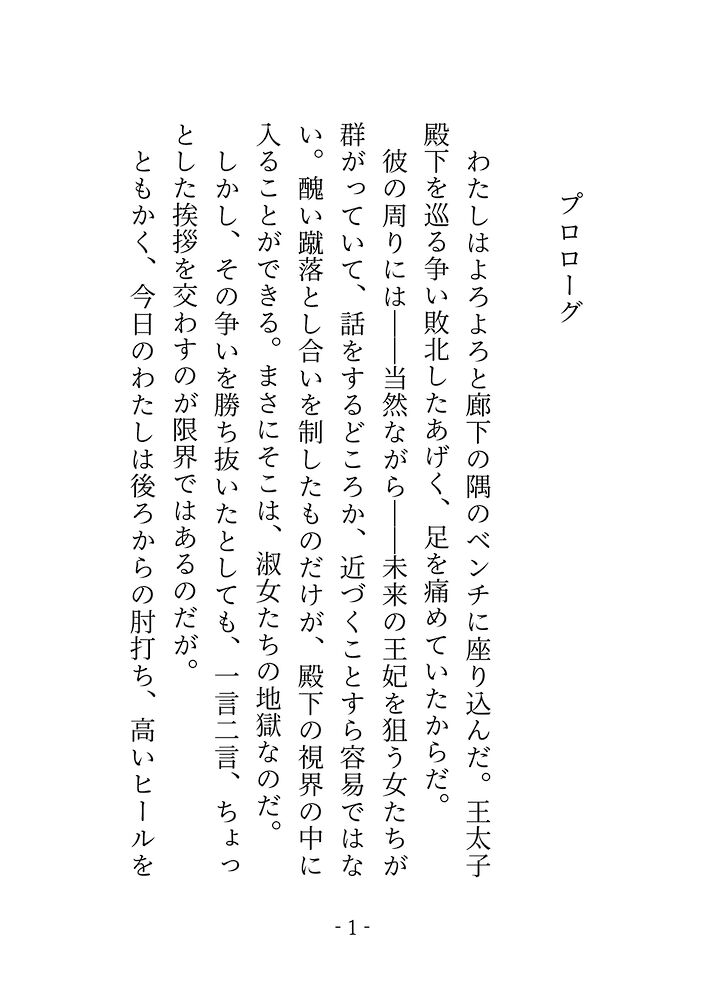 プロローグ
わたしはよろよろと廊下の隅のベンチに座り込んだ。王太子
殿下を巡る争い敗北したあげく、足を痛めていたからだ。
彼の周りには――当然ながら――未来の王妃を狙う女たちが
群がっていて、話をするどころか、近づくことすら容易ではな
い。醜い蹴落とし合いを制したものだけが、殿下の視界の中に
入ることができる。まさにそこは、淑女たちの地獄なのだ。
しかし、その争いを勝ち抜いたとしても、一言二言、ちょっ
とした挨拶を交わすのが限界ではあるのだが。
ともかく、今日のわたしは後ろからの肘打ち、高いヒールを
- 1 -